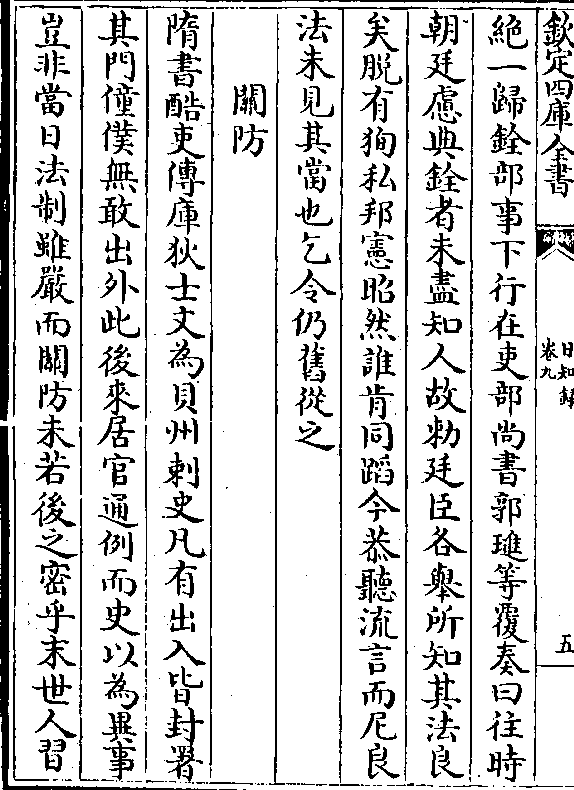 欽定四庫全書
日知錄
卷九
五
絶一歸銓部事下行在吏部尚書郭璡等覆奏曰往時
朝廷慮典銓者未盡知人故勅廷臣各舉所知其法良
矣脫有狥私邦憲昭然誰肯同蹈今恭聽流言而厄良
法未見其當也乞令仍舊從之
關防
隋書酷吏傳庫狄士文為貝州刺史凡有出入皆封署
其門僮僕無敢出外此後來居官通例而史以為異事
豈非當日法制雖嚴而關防未若後之密乎末世人習